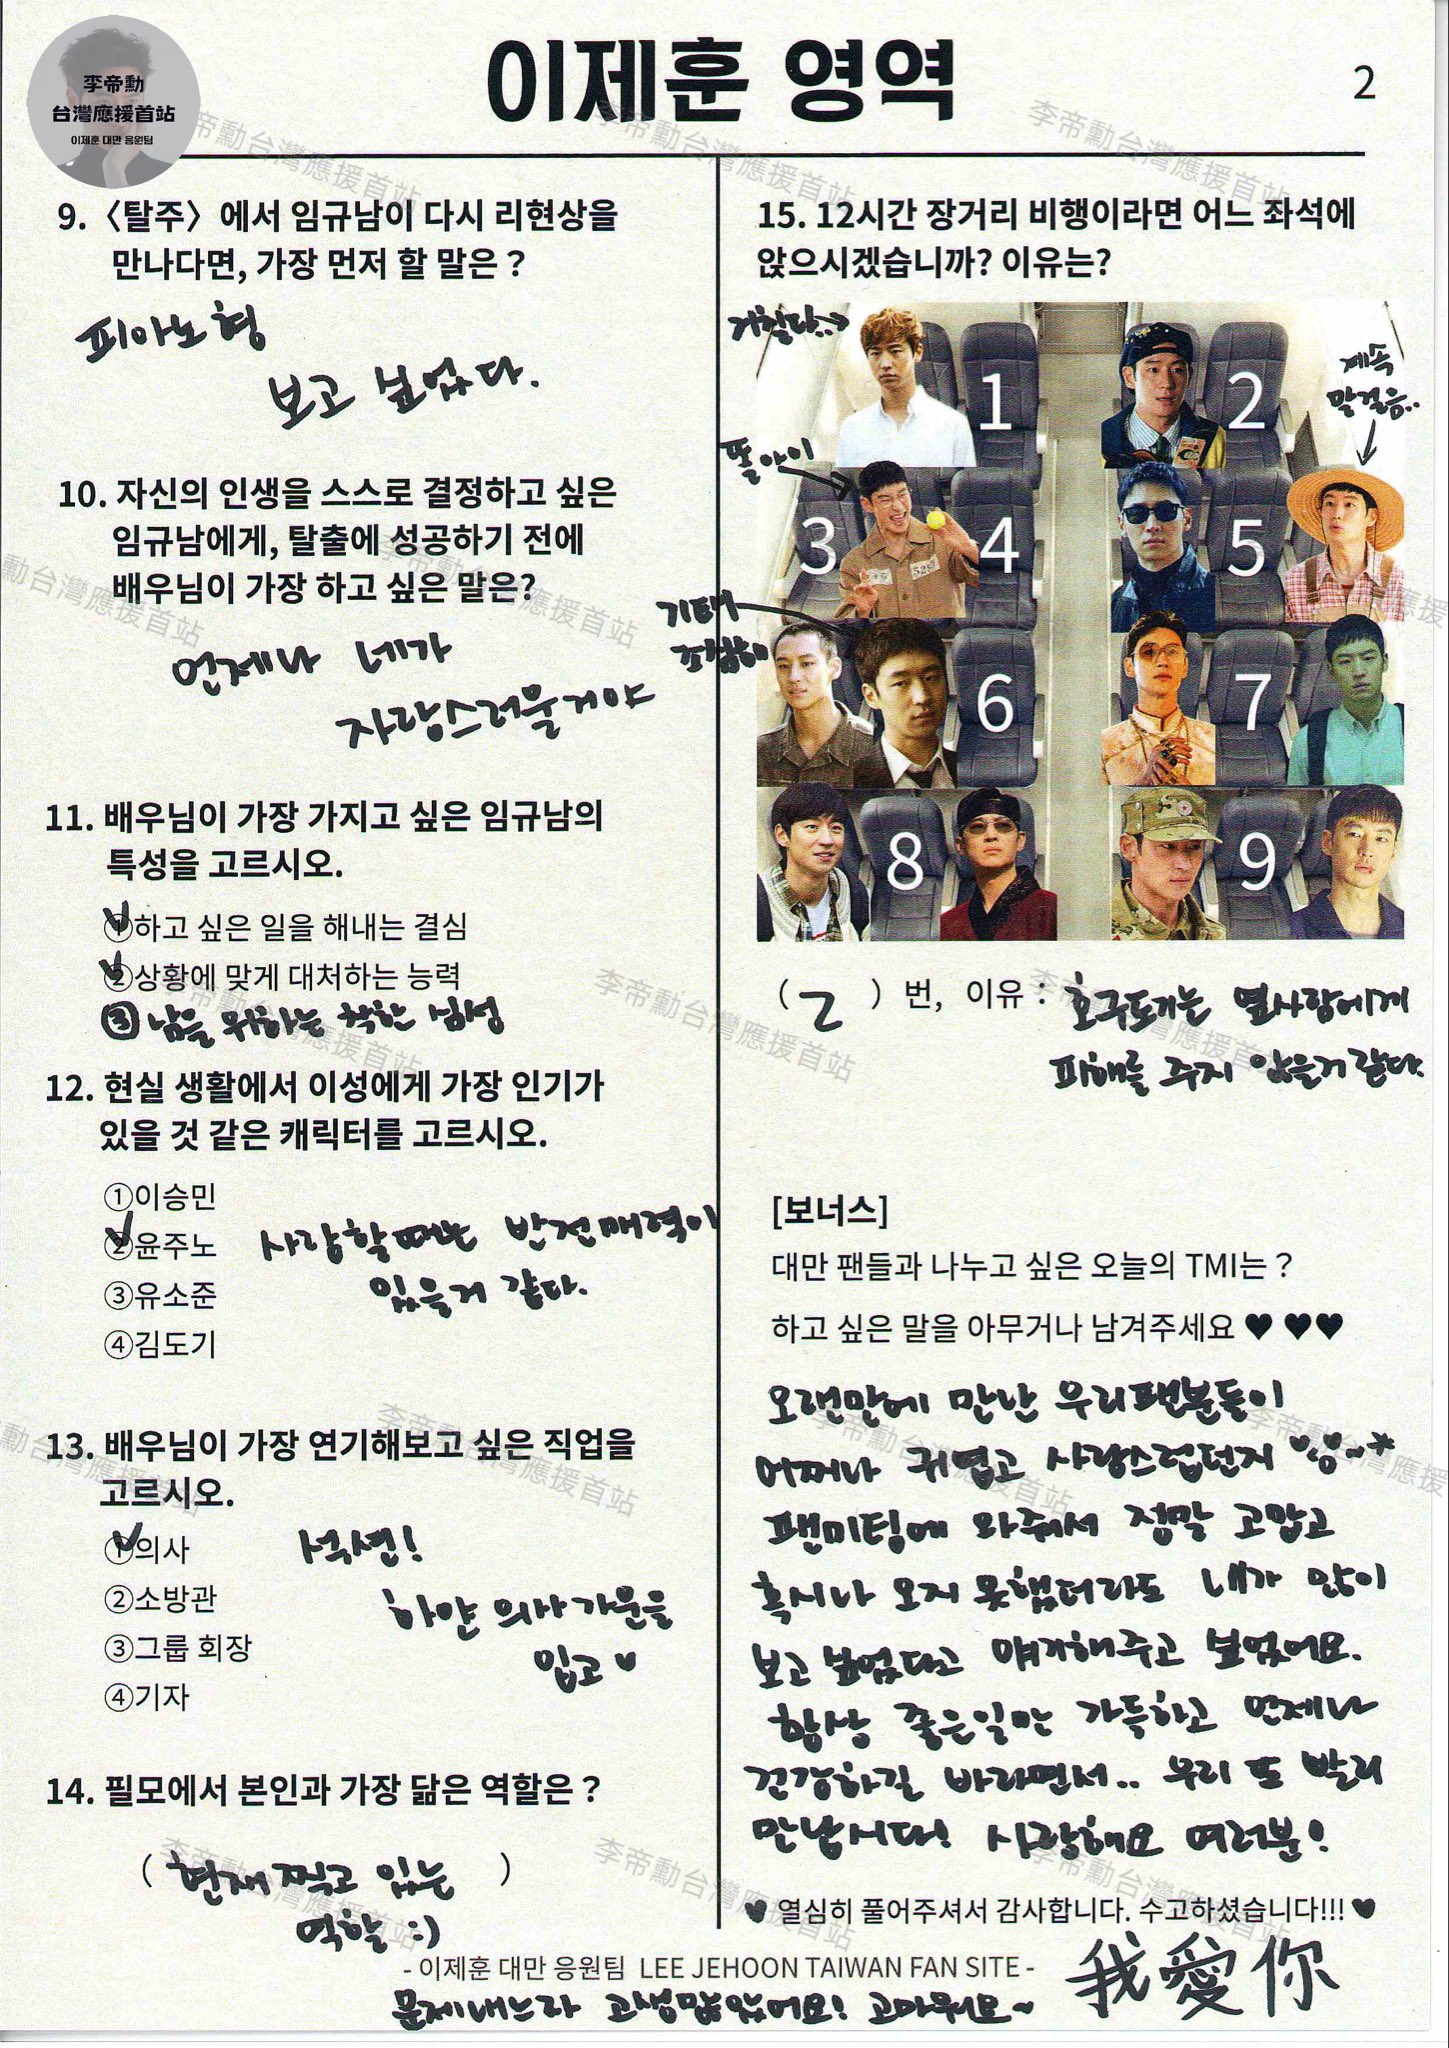 李帝勳
台灣應援首站
이제훈 대만 응원팀
이제훈 영역
2
9. 〈탈주〉에서 임규남이 다시 리현상을
만나다면, 가장 먼저 할 말은 ?
피아노 형
보고 싶었다.
10. 자신의 인생을 스스로 결정하고 싶은
임규남에게, 탈출에 성공하기 전에
배우님이 가장 하고 싶은 말은?
언제나 네가
자랑스러울거야
11. 배우님이 가장 가지고 싶은 임규남의
특성을 고르시오.
①하고 싶은 일을 해내는 결심
②상황에 맞게 대처하는 능력
③ 남을 위하는 착한 심성
12. 현실 생활에서 이성에게 가장 인기가
있을 것 같은 캐릭터를 고르시오.
①이승민
②윤주노
③유소준
④김도기
사랑할때는 반전매력이
있을거 같다.
13. 배우님이 가장 연기해보고 싶은 직업을
고르시오.
①의사
②소방관
③그룹 회장
④기자
섹션!
하얀 의사가운을
입고♥
14. 필모에서 본인과 가장 닮은 역할은 ?
( 현재 찍고 있는 )
역할 :)
15. 12시간 장거리 비행이라면 어느 좌석에
앉으시겠습니까? 이유는?
거칠다..?
1
2
계속
말걸음..
똘아이
3
4
5
기태
6
7
8
9
( 2 ) 번, 이유 : 호구도기는 옆사람에게
피해를 주지 않을거 같다.
[보너스]
대만 팬들과 나누고 싶은 오늘의 TMI는 ?
하고 싶은 말을 아무거나 남겨주세요 ♥ ♥♥
오랜만에 만난 우리팬분들이
어찌나 귀엽고 사랑스럽던지
팬미팅에 와줘서 정말 고맙고
혹시나 오지 못했더라도 내가 많이
보고 싶었다고 얘기해주고 싶었어요.
항상 좋은일만 가득하고 언제나
건강하길 바라면서.. 우리 또 빨리
만납시다! 사랑해요 여러분!
♥ 열심히 풀어주셔서 감사합니다. 수고하셨습니다!!! ♥
- 이제훈 대만 응원팀 LEE JEHOON TAIWAN FAN SITE -
문제내느라 고생많았어요! 고마워요~
我愛你